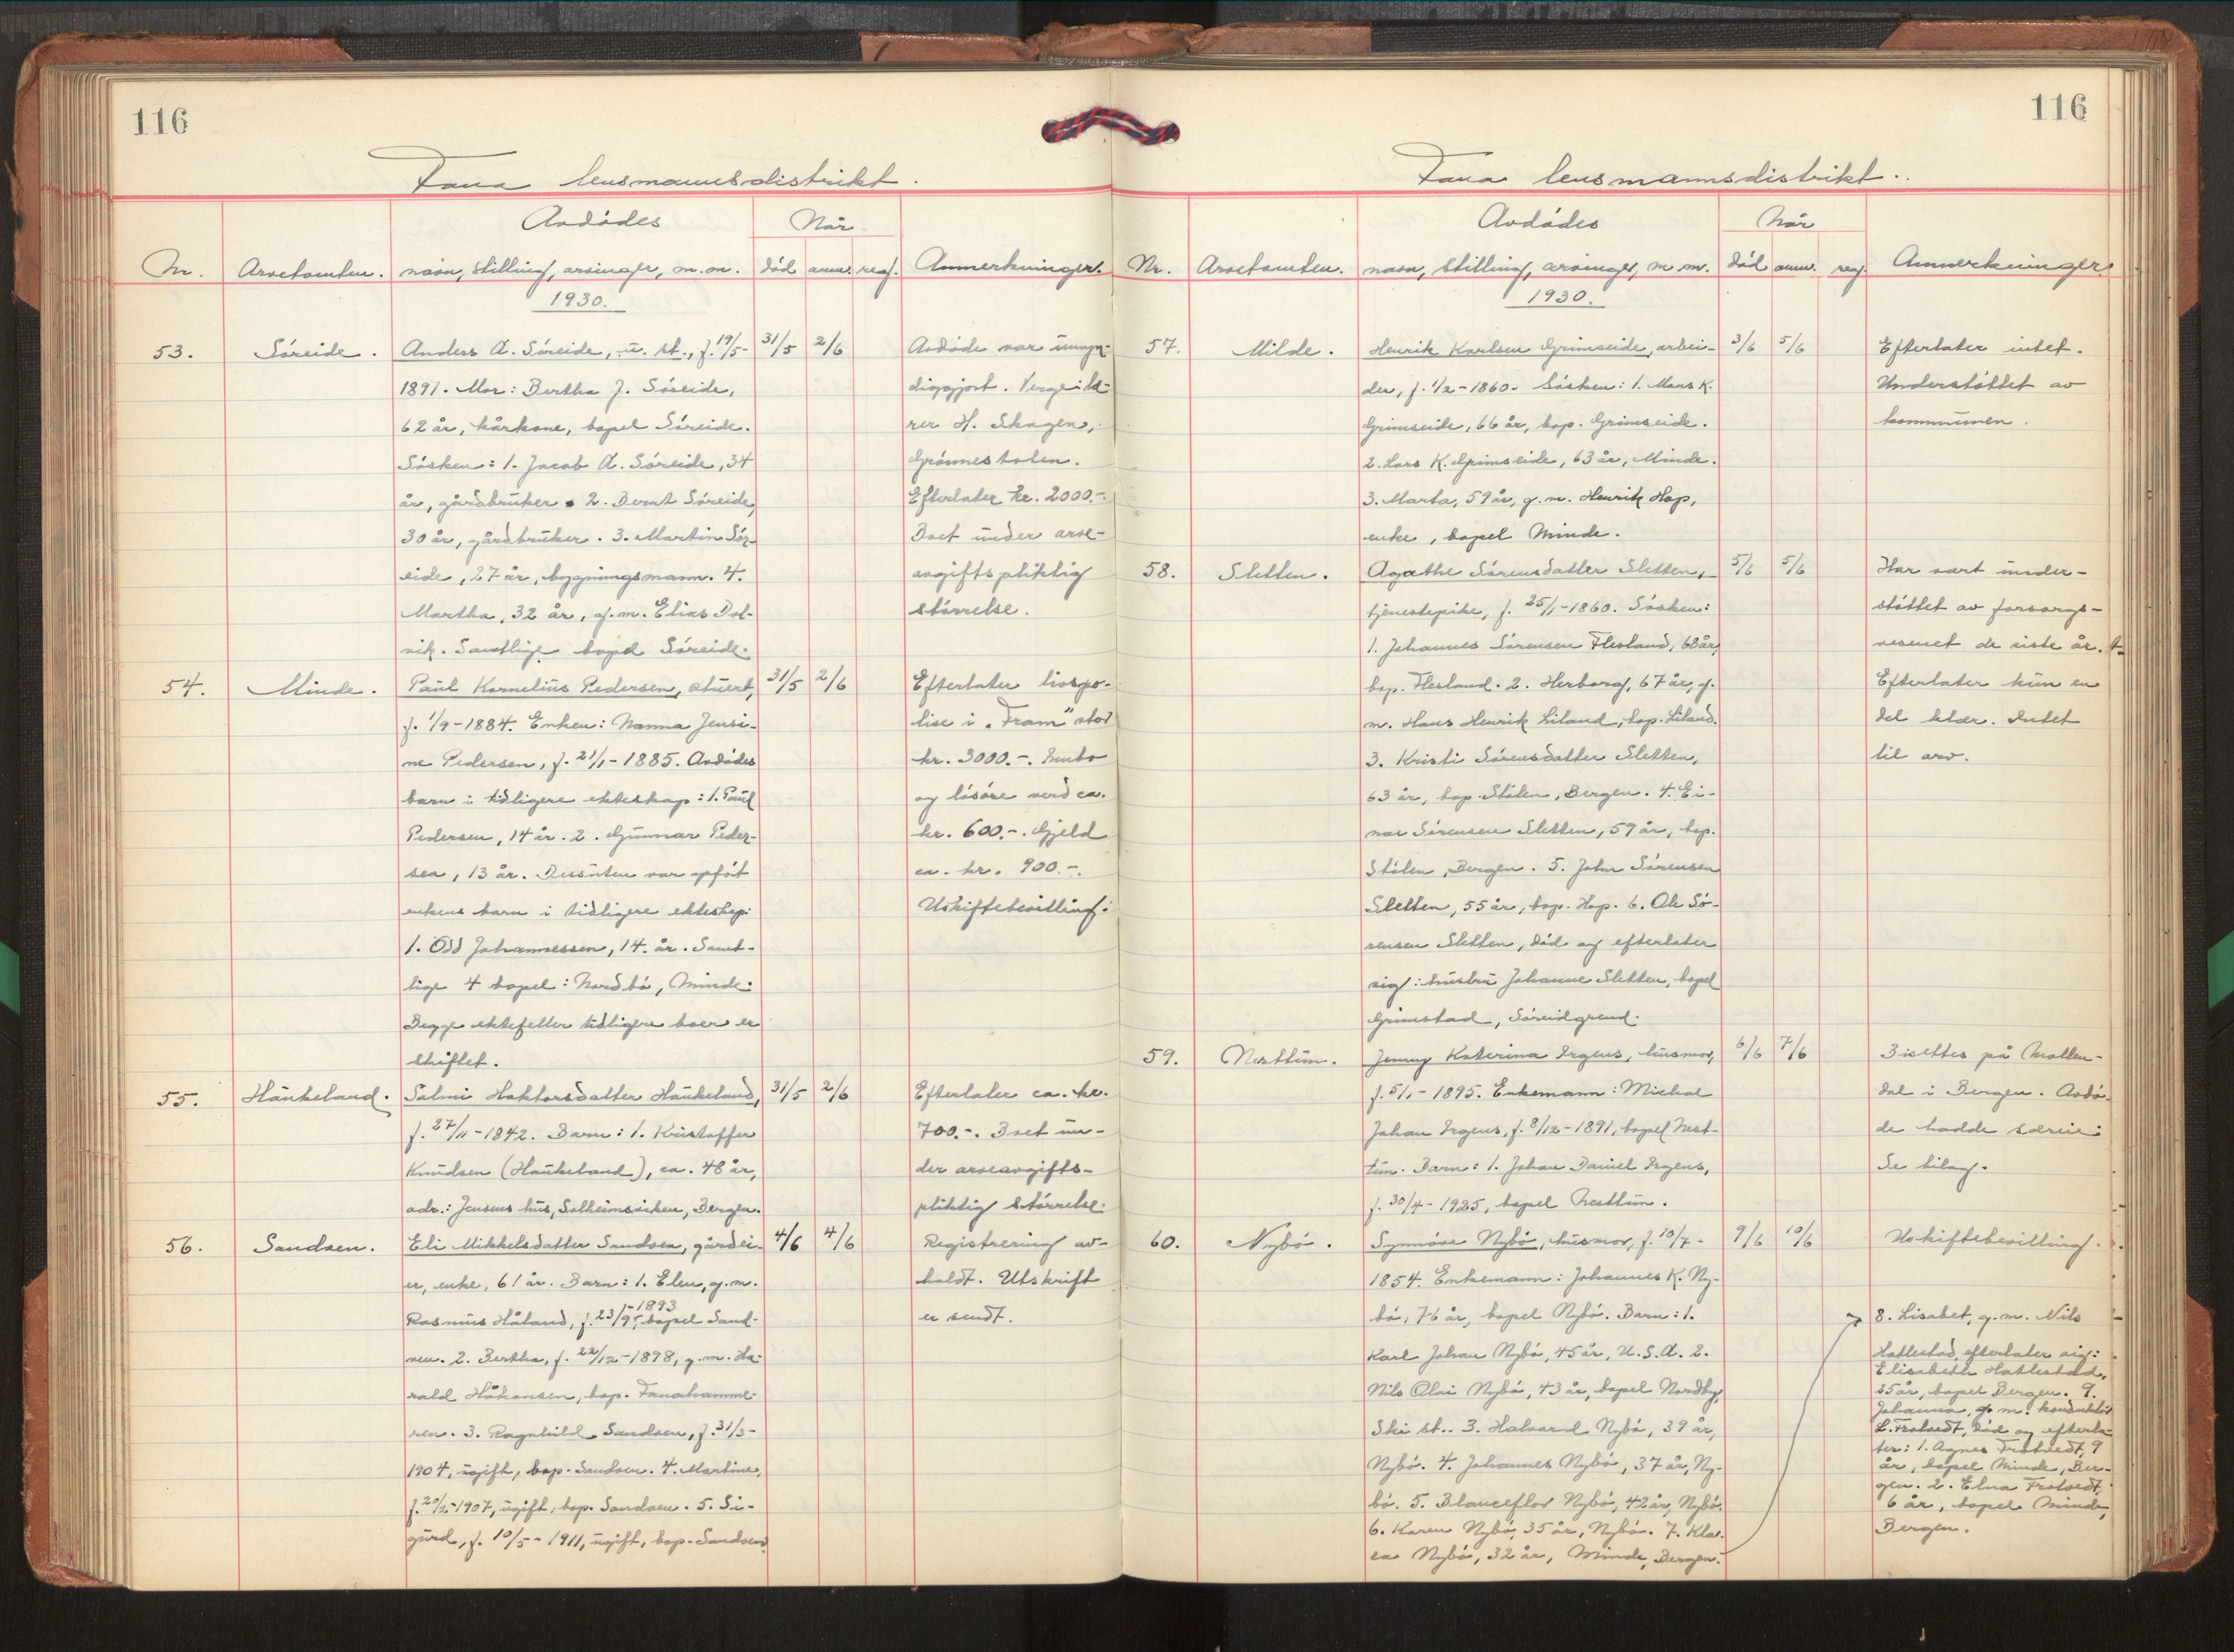 116
Fana lensmannsdistrikt.
Avdødes
Når
Nr.
Arvetomten.
navn, stilling, arvinger, m.m.
død
anm.
reg.
Anmerkninger.
1930.
53.
Søreide.
Anders A. Søreide, u. st., f. 19/5-
1891. Mor: Bertha J. Søreide,
62 år, kårkone, bopel Søreide.
Søsken: 1. Jacob A. Søreide, 34
år, gårdbruker. 2. Bernt Søreide,
30 år, gårdbruker. 3. Martin Sør-
eide, 27 år, bygningsmann. 4.
Martha, 32 år, g.m. Elias Dol-
vik. Samtlige bopel Søreide.
31/5
2/6
Avdøde var umyn-
diggjort. Verge: læ-
rer H. Skagen,
Grønnestølen.
Efterlater kr. 2000.-.
Boet under arve-
avgiftspliktig
størrelse.
54.
Minde.
Paul Kornelius Pedersen, stuert,
f. 1/9-1884. Enken: Nanna Jensi-
ne Pedersen, f. 21/1-1885. Avdødes
barn i tidligere ekteskap: 1. Paul
Pedersen, 14 år. 2. Gunnar Peder-
sen, 13 år. Dessuten var opføt
enkens barn i tidligere ekteskap:
1. Odd Johannessen, 14 år. Samt-
lige 4 bopel: Nordbø, Minde.
Begge ektefeller tidligere boer er
skiftet.
31/5
2/6
Efterlater livspo-
lise i "Fram" stor
kr. 3000.-. Innbo
og løsøre verd ca.
kr. 600.-. Gjeld
ca. kr. 900.-.
Uskiftebevilling.
55.
Haukeland.
Salmi Haktorsdatter Haukeland,
f. 27/11-1842. Barn: 1. Kristoffer
Knudsen (Haukeland), ca. 48 år,
adr.: Jensens hus, Solheimsviken, Bergen.
31/5
2/6
Efterlater ca. kr.
700.-. Boet un-
der arveavgifts-
pliktig størrelse.
56.
Sandven.
Eli Mikkelsdatter Sandven, gårdei-
er, enke, 61 år. Barn: 1. Elen, g.m.
Rasmus Håland, f. 23/9-1893, bopel Sand-
ven. 2. Bertha, f. 22/12-1898, g.m. Ha-
rald Håkonsen, bop. Fanahamme-
ren. 3. Ragnhild Sandven, f. 31/3-
1904, ugift, bop. Sandven. 4. Martine,
f. 20/2-1907, ugift, bop. Sandven. 5. Si-
gurd, f. 10/5-1911, ugift, bop. Sandven.
4/6
4/6
Registrering av-
holdt. Utskrift
er sendt.
116
Fana lensmannsdistrikt.
Avdødes
Når
Nr.
Arvetomten.
navn, stilling, arvinger, m.m.
død
anm.
reg.
Anmerkninger.
1930.
57.
Milde.
Henrik Karlsen Grimseide, arbei-
der, f. 1/2-1860. Søsken: 1. Mons K.
Grimseide, 66 år, bop. Grimseide.
2. Lars K. Grimseide, 63 år, Minde.
3. Marta, 59 år, g.m. Henrik Hop,
enke, bopel Minde.
3/6
5/6
Efterlater intet.
Understøttet av
kommunen.
58.
Sletten.
Agathe Sørensdatter Sletten,
tjenestepike, f. 25/1-1860. Søsken:
1. Johannes Sørensen Flesland, 68 år,
bop. Flesland. 2. Herborg, 67 år, g.
m. Hans Henrik Liland, bop. Liland.
3. Kristi Sørensdatter Sletten,
63 år, bop. Stølen, Bergen. 4. Ei-
nar Sørensen Sletten, 59 år, bop.
Stølen, Bergen. 5. John Sørensen
Sletten, 55 år, bop. Hop. 6. Ole Sø-
rensen Sletten, død og efterlater
sig: hustru Johanne Sletten, bopel
Grimstad, Søreidgrend.
5/6
5/6
Har vært under-
støttet av forsorgs-
vesenet de siste år.
Efterlater kun en
del klær. Intet
til arv.
59.
Nesttun.
Jenny Katerina Irgens, husmor,
f. 5/1-1895. Enkemann: Michal
Johan Irgens, f. 8/12-1891, bopel Nest-
tun. Barn: 1. Johan Daniel Irgens,
f. 30/4-1925, bopel Nesttun.
6/6
7/6
Bisettes på Møllen-
dal i Bergen. Avdø-
de hadde særeie.
Se bilag.
60.
Nybø.
Synnøve Nybø, husmor, f. 10/7-
1854. Enkemann: Johannes K. Ny-
bø, 76 år, bopel Nybø. Barn: 1.
Karl Johan Nybø, 45 år, U.S.A. 2.
Nils Olai Nybø, 43 år, bopel Nordby,
Ski st.. 3. Halvard Nybø, 39 år,
Nybø. 4. Johannes Nybø, 37 år, Ny-
bø. 5. Blanceflor Nybø, 42 år, Nybø.
6. Karen Nybø, 35 år, Nybø. 7. Kla-
ra Nybø, 32 år, Minde, Bergen.
9/6
10/6
Uskiftebevilling.
8. Lisabet, g.m. Nils
Hatlestad, efterlater sig:
Elisabeth Hatlestad,
25 år, bopel Bergen. 9.
Johanna, g.m. konduktør
L. Frotvedt, død og efterla-
ter: 1. Agnes Frotvedt, 9
år, bopel Minde, Ber-
gen. 2. Elna Frotvedt,
6 år, bopel Minde,
Bergen.